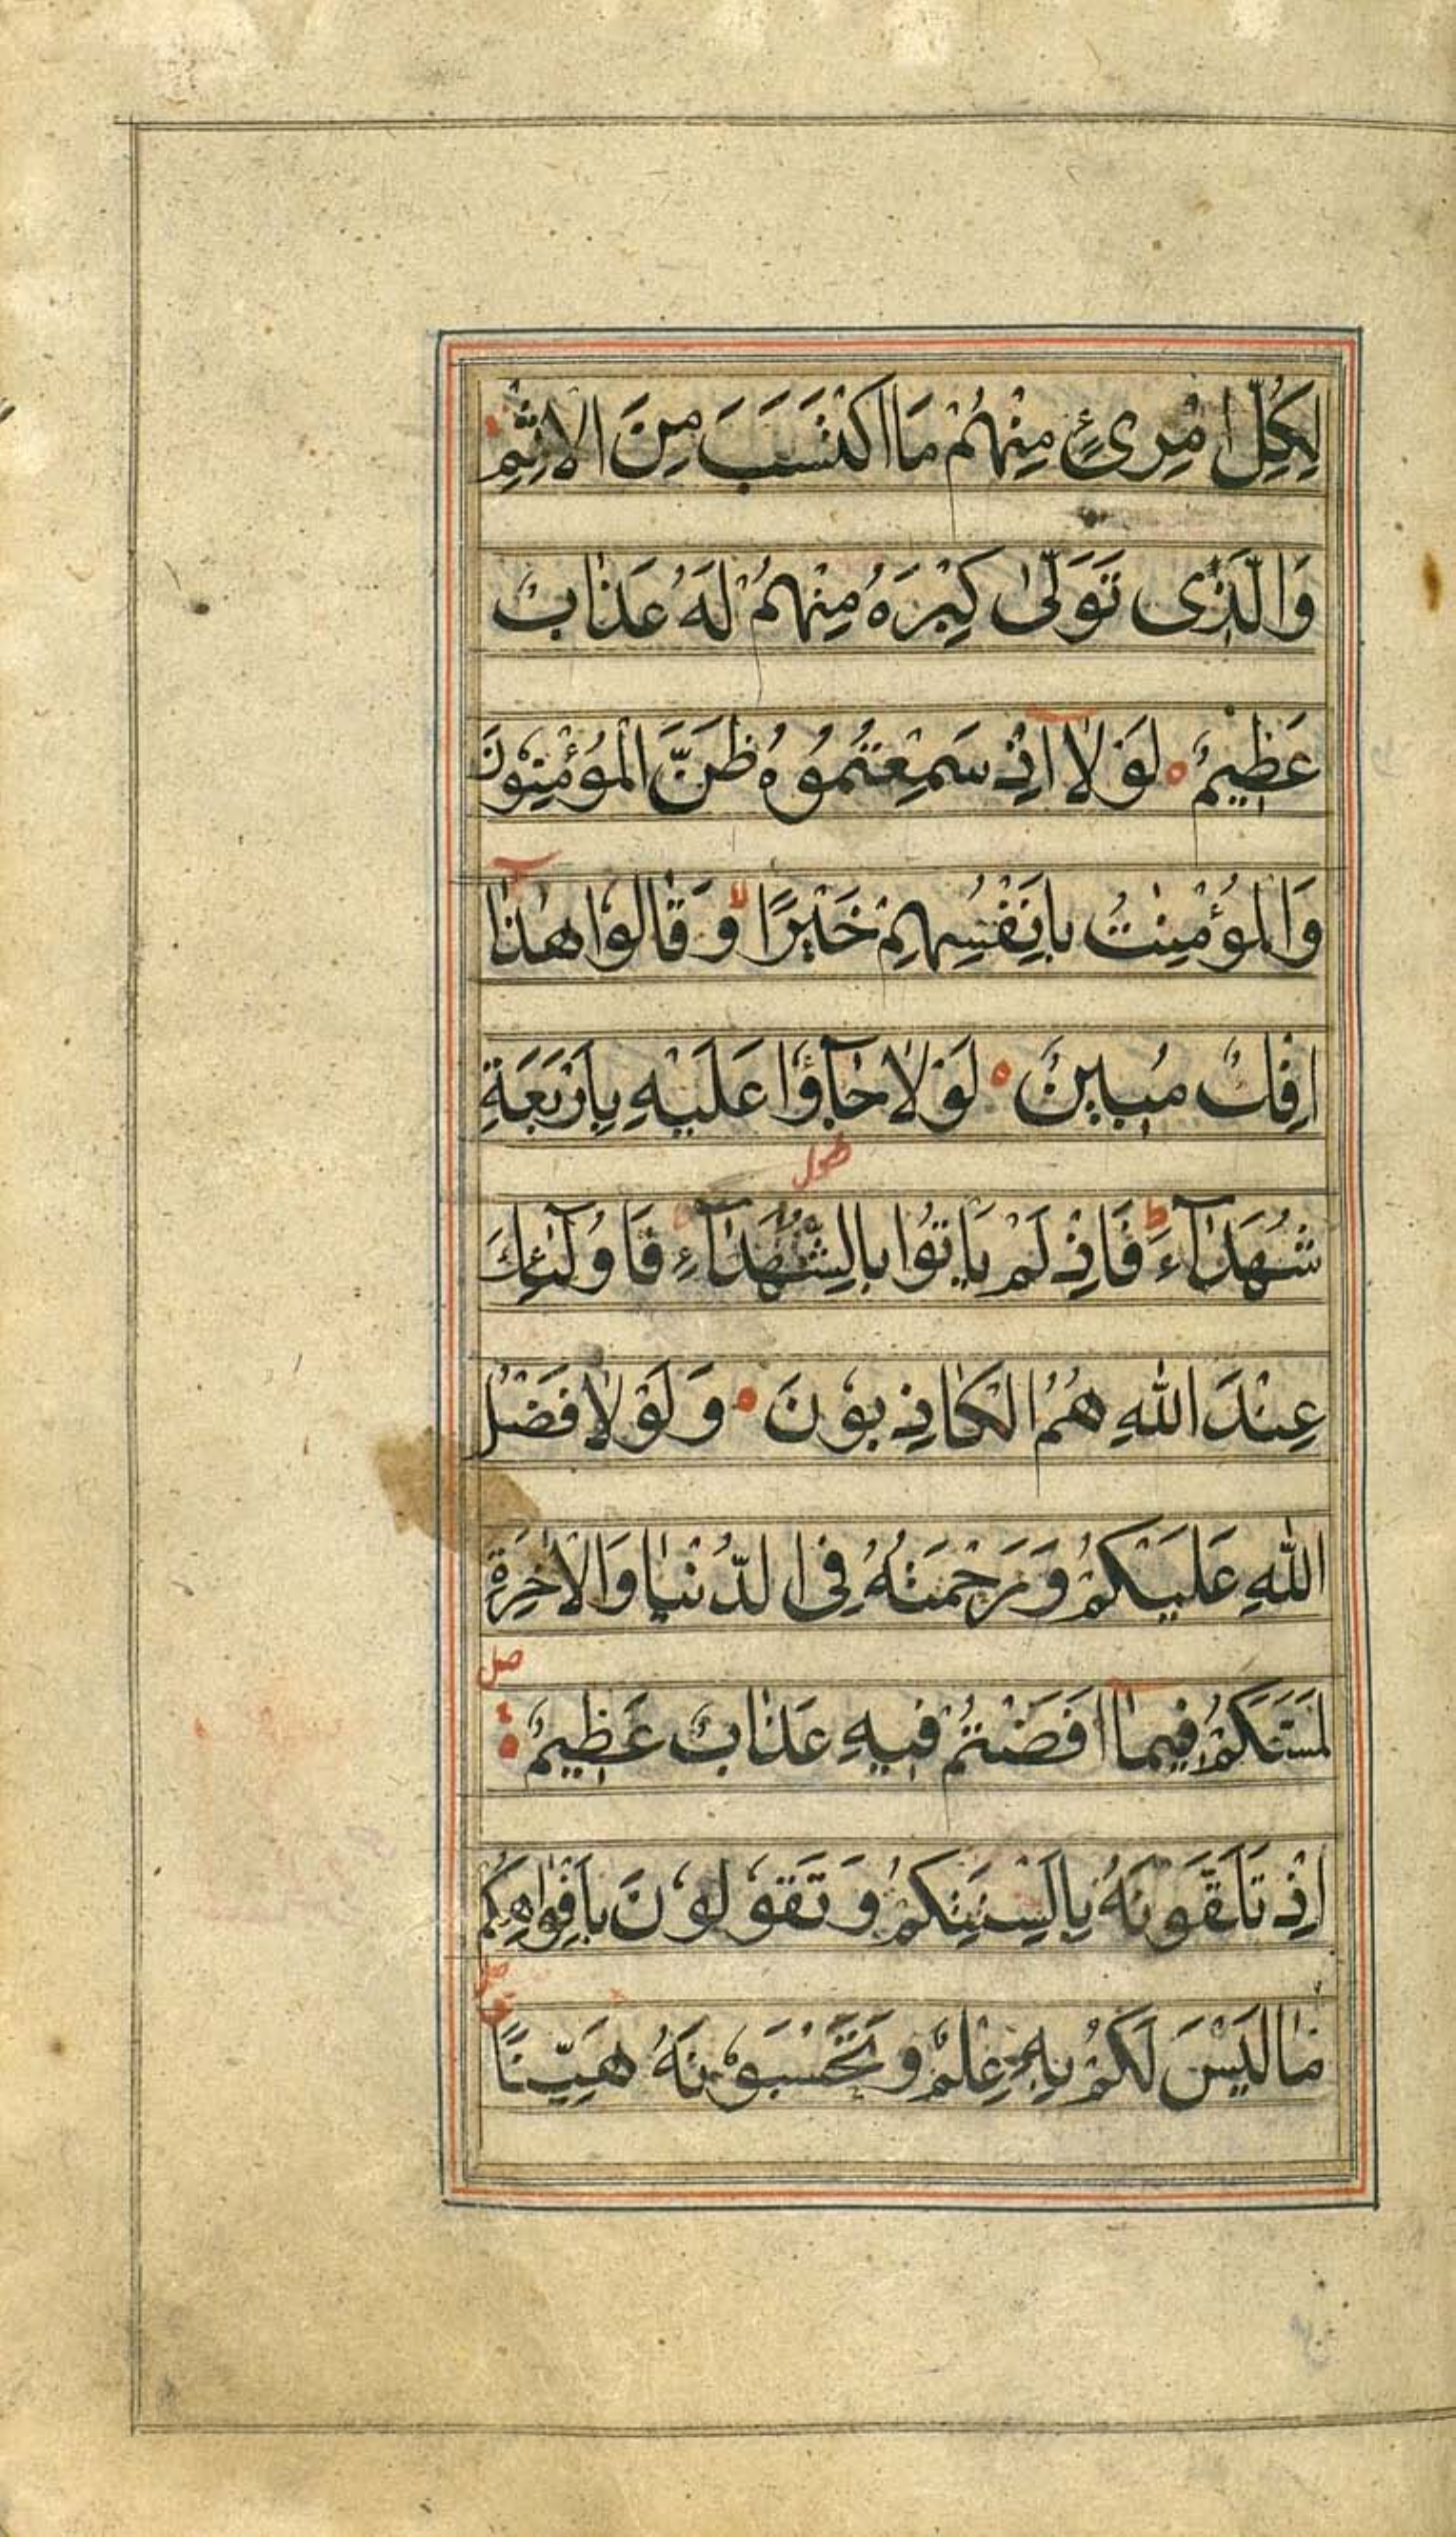 لِكُلِّ امْرِئٍ مِنْهُمْ مَا اكْتَسَبَ مِنَ الْاِثْمِ
وَالَّذِى تَوَلّٰى كِبْرَهُ مِنْهُمْ لَهُ عَذَابٌ
عَظِيمٌ لَوْلَا اِذْ سَمِعْتُمُوهُ ظَنَّ الْمُؤْمِنُونَ
وَالْمُؤْمِنٰتُ بِاَنْفُسِهِمْ خَيْرًا وَقَالُوا هٰذَا
اِفْكٌ مُبِينٌ لَوْلَا جَآؤُا عَلَيْهِ بِاَرْبَعَةِ
طول
شُهَدَآءَ ط فَاِذْ لَمْ يَاْتُوا بِالشُّهَدَآءِ فَاُولٰٓئِكَ
عِنْدَ اللهِ هُمُ الْكَاذِبُونَ وَلَوْلَا فَضْلُ
اللهِ عَلَيْكُمْ وَرَحْمَتُهُ فِى الدُّنْيَا وَالْاٰخِرَةِ
صل
لَمَسَّكُمْ فِيمَا اَفَضْتُمْ فِيهِ عَذَابٌ عَظِيمٌ
اِذْ تَلَقَّوْنَهُ بِاَلْسِنَتِكُمْ وَتَقُولُونَ بِاَفْوَاهِكُمْ
مَا لَيْسَ لَكُمْ بِهِ عِلْمٌ وَتَحْسَبُونَهُ هَيِّنًا